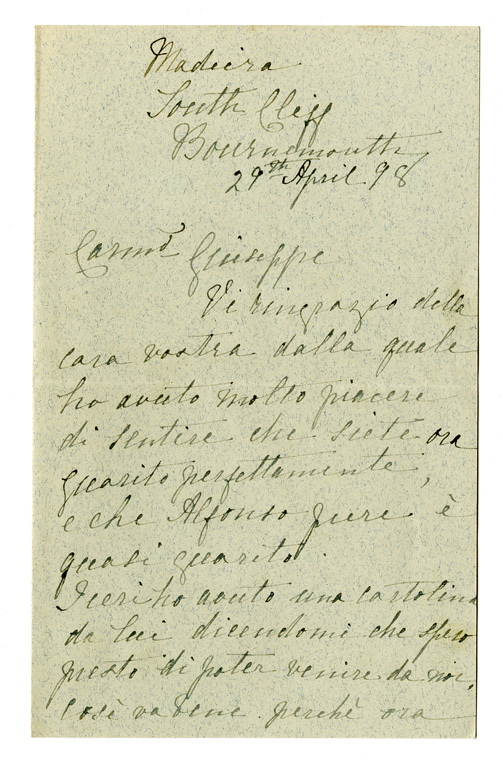 Madeira
South Cliff
Bournemouth
29th April 98
Carmo Giuseppe
Vi ringrazio della
cara vostra dalla quale
ho avuto molto piacere
di sentire che siete ora
guarito perfettamente,
e che Alfonso pure è
quasi guarito.
Ieri ho avuto una cartolina
da lui dicendomi che spero
presto di poter venire da noi,
Cosè va bene perchè ora